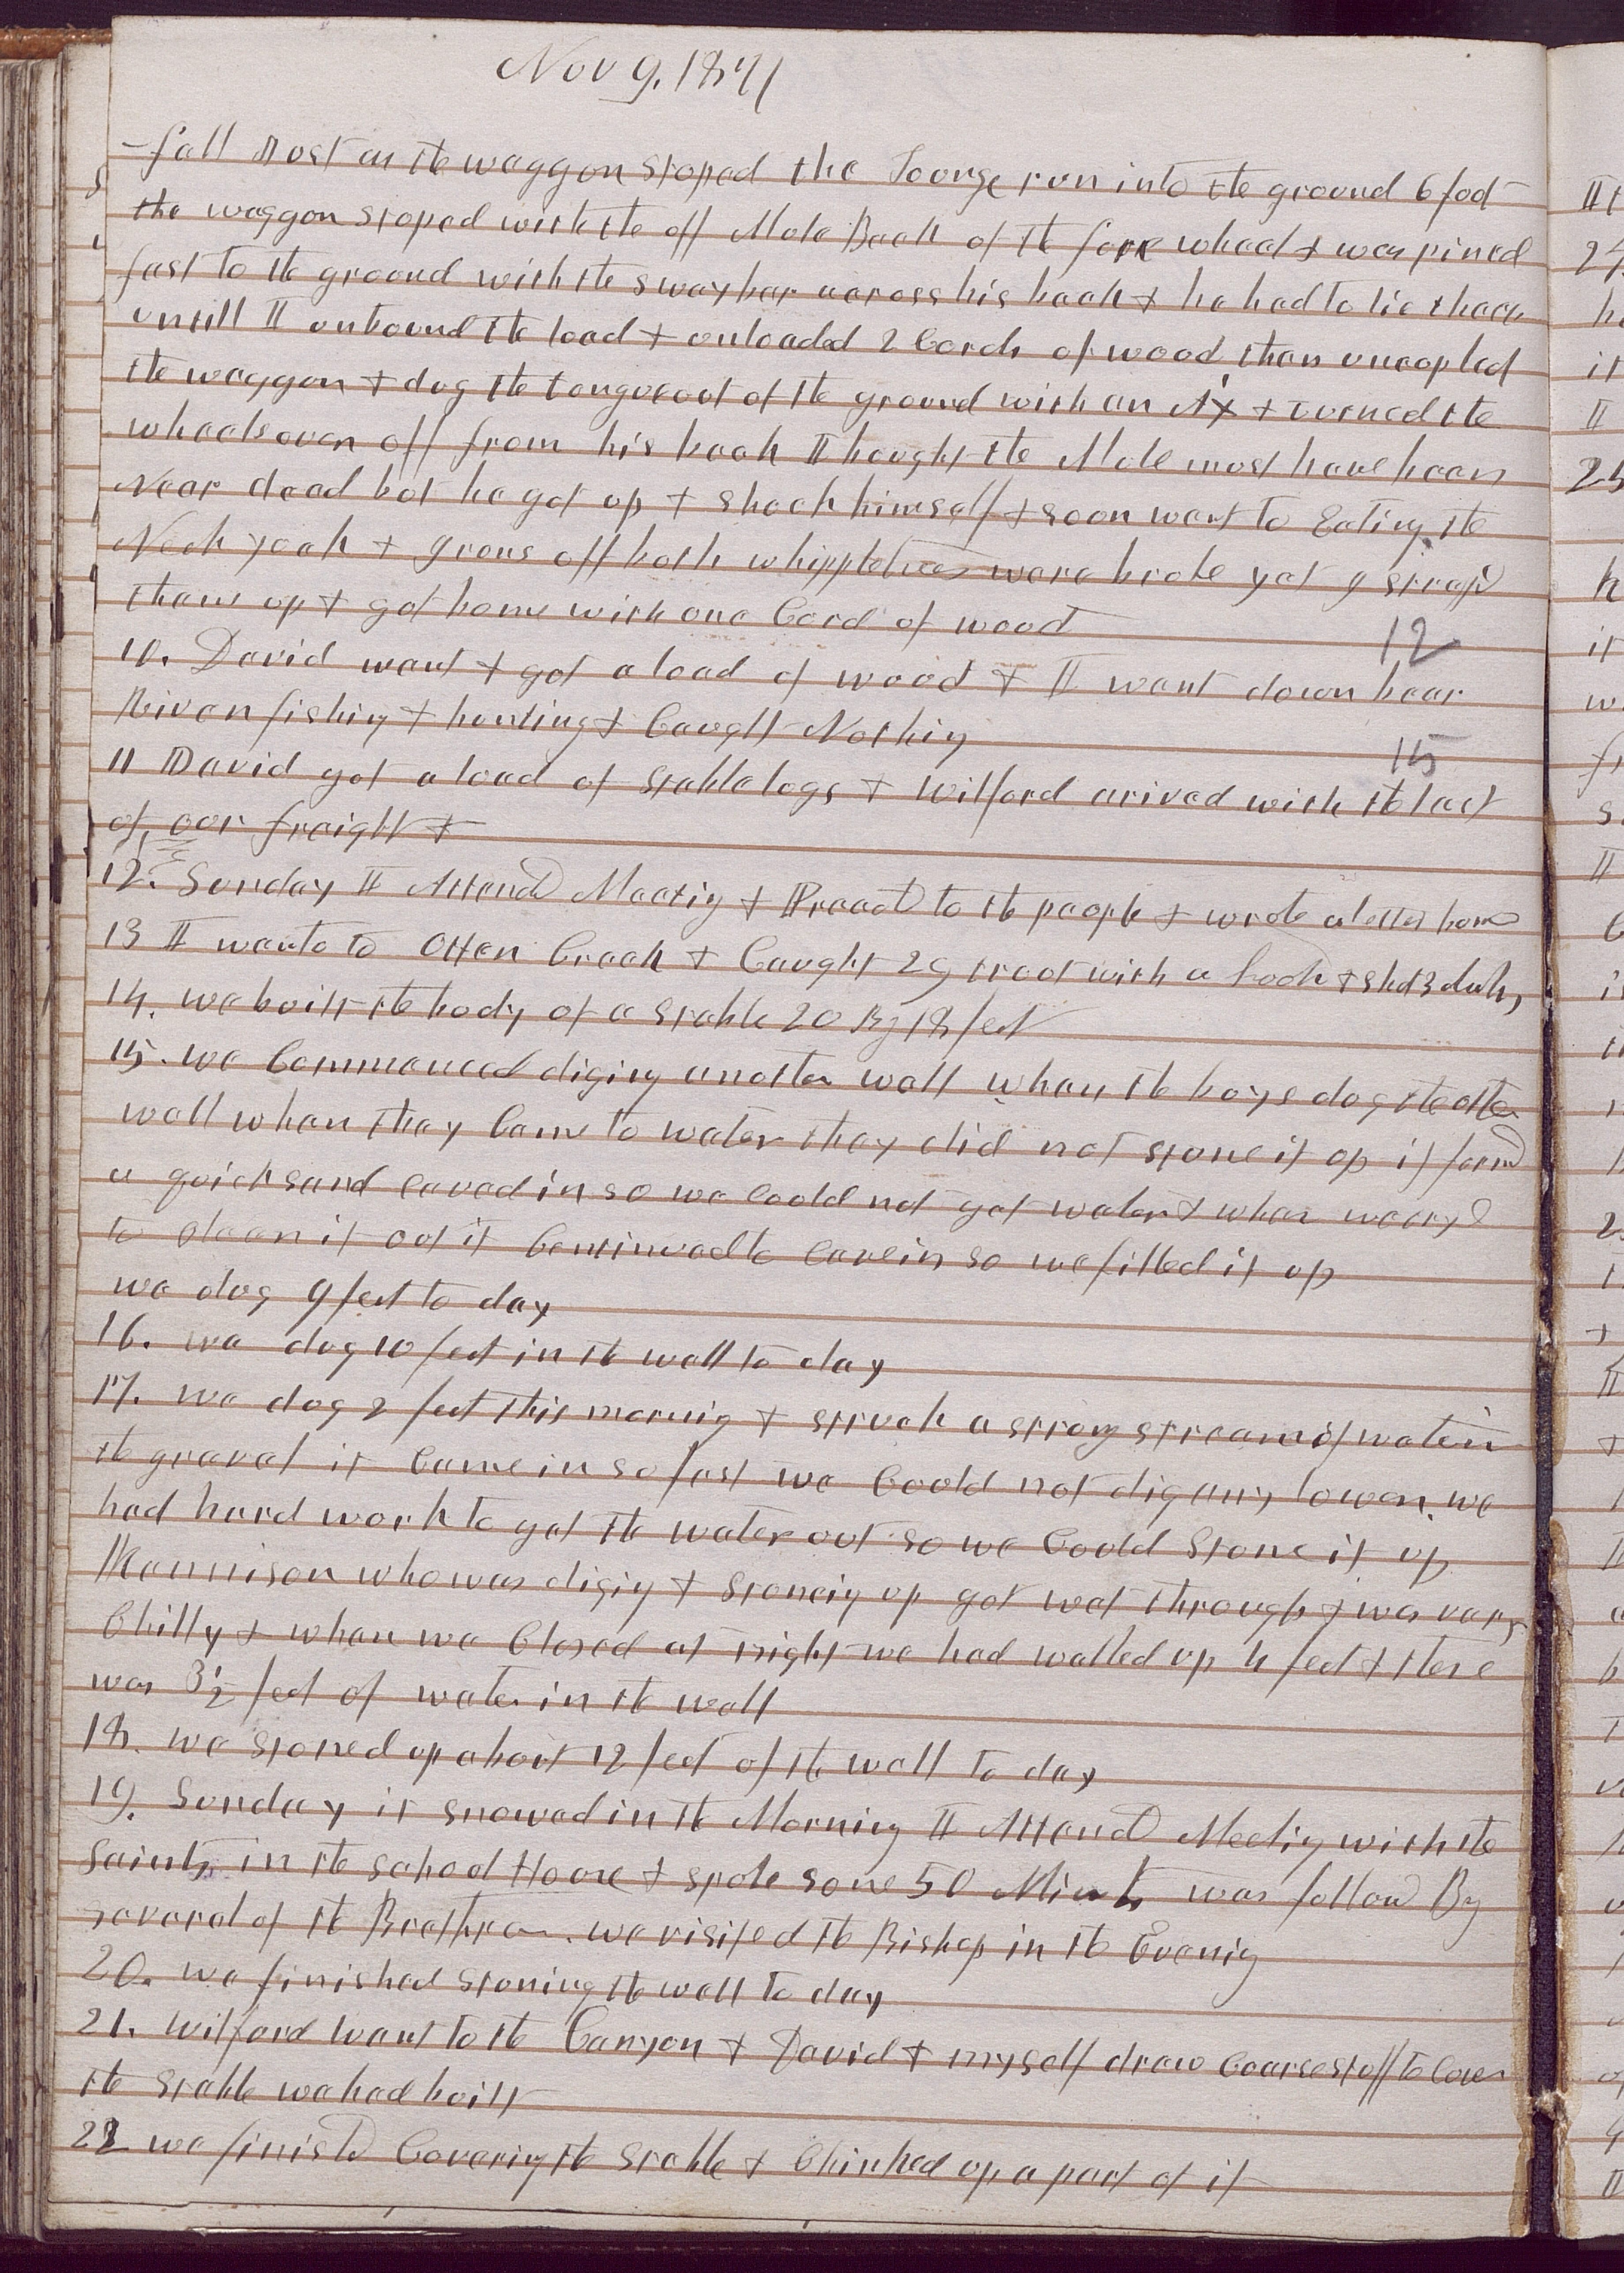 Nov 9, 1871
fall Most as the waggon stoped the Tounge run into the ground 6 foot
the waggon stoped with the off Mule Back of the fore wheel & was pined
fast to the ground with the sway bar across his back & he had to lie thare
untill I unbound the load & unloaded 2 Cords of wood then uncoupled
the waggon & dug the tongue out of the ground with an Ax & turned the
wheels over off from his back I thought the Mule must have been
Near dead but he got up & shook himself & soon went to Eating the
Neck yoak & off both whippletrees were broke yet I strap'd
them up & got home with one Cord of wood 12
10. David went & got a load of wood & I went down bear
River fishing & hunting & Caught Nothing 15
11 David got a load of stable logs & Wilford arived with the last
of our freight &
12. Sunday I Attend Meeting & Preachd to the people & wrote a letter home
13 I wente to Otter Creek & Caught 29 trout with a hook & shot 3 ducks,
14. we built the body of a stable 20 By 18 feet
15. we Commenced diging another well when the boys dug the other
well when they Came to water they did not stone it up it formd
a quick sand caved in so we Could not get water & when we tryd
to clean it out it Continued to Cave in so we filled it up
we dug 9 feet to day
16. we dug 10 feet in the well to day
17. we dug 2 feet this morning & struck a strong stream of water in
the gravel it Came in so fast we Could not dig any lower. we
had hard work to get the water out so we Could Stone it up
Mannison who was diging & stoneing up got wet through & was vary
Chilly & when we Closed at night we had walled up 4 feet & there
was 3½ feet of water in the well
18. we stoned up about 12 feet of the well to day
19. Sunday it snowed in the Morning I Attend Meeting with the
Saints in the school House & spoke some 50 Minuts was follow By
several of the Brethren. we visited the Bishop in the Evening
20. we finished stoning the well to day
21. Wilford went to the Canyon & David & myself draw Coarse stuff to Cover
the stable we had built
22 we finishd Covering the stable & Chinked up a part of it